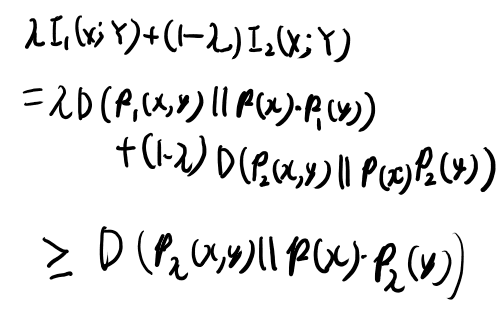 λI₁(x;Y)+(1-λ)I₂(X;Y)
=λD(P₁(x,y)||P(x)·P₁(y))
+(1-λ)D(P₂(x,y)||P(x)P₂(y))
≥ D(P_λ(x,y)||P(x)·P_λ(y))